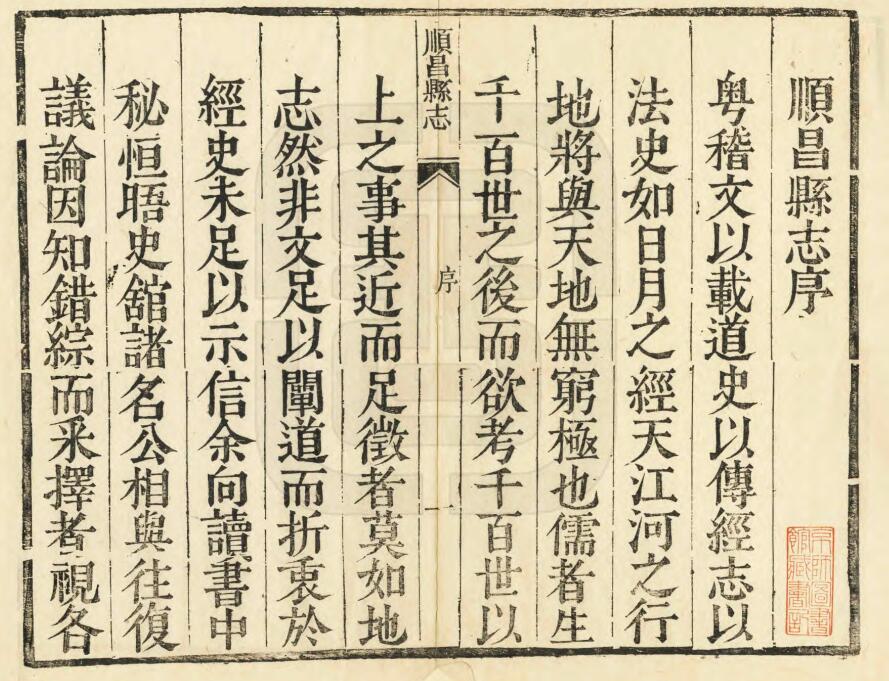 順昌縣志序
粤稽文以載道史以傳經志以
法史如日月之經天江河之行
地將與天地無窮極也儒者生
千百世之後而欲考千百世以
順昌縣志
序
一
上之事其近而足徵者莫如地
志然非文足以闡道而折衷於
經史未足以示信余向讀書中
秘恒晤史舘諸名公相與往復
議論因知錯綜而采擇者視各
京師圖書
館藏書記